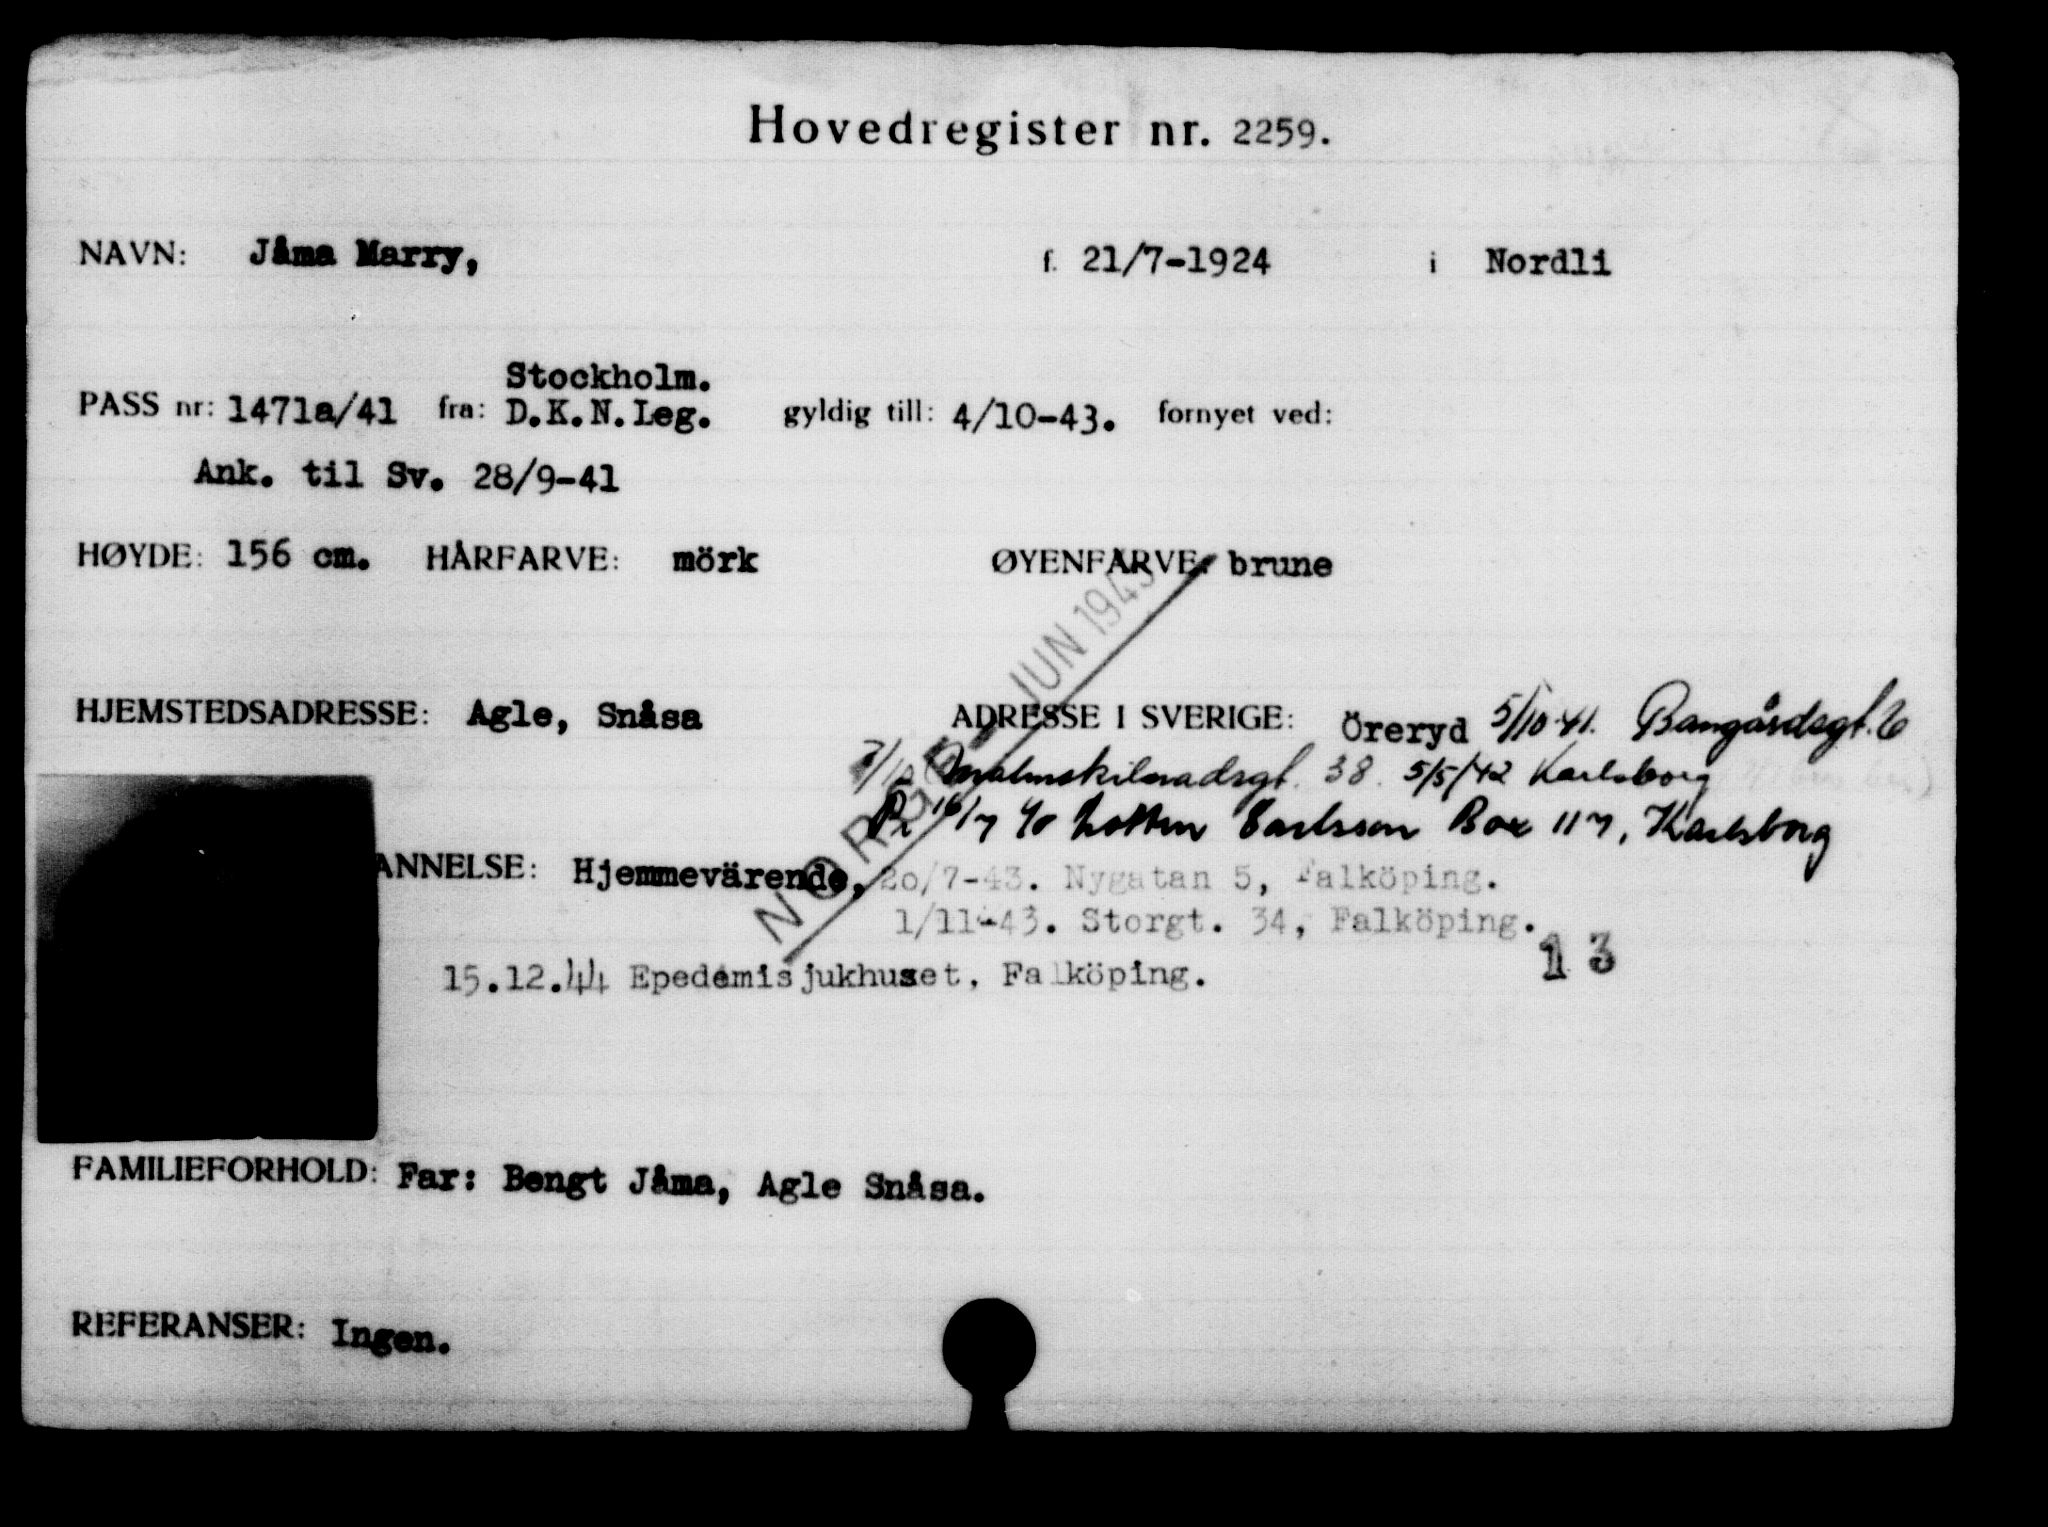 Hovedregister nr. 2259.
NAVN: Jåma Marry, f. 21/7-1924 i Nordli
Stockholm.
PASS nr: 1471a/41 fra: D.K.N.Leg. gyldig till: 4/10-43. fornyet ved:
Ank. til Sv. 28/9-41
HØYDE: 156 cm. HÅRFARVE: mörk ØYENFARVE: brune
JUN 1945
HJEMSTEDSADRESSE: Agle, Snåsa ADRESSE I SVERIGE: Öreryd 5/10-41. Bangårdsgt. 6
Malmskilnadsgt. 38. 5/5/42 Karlsborg
16/7 c/o Carlsson Box 117, Karlsborg
NORGE
ANNELSE: Hjemmevärende, 20/7-43. Nygatan 5, Falköping.
1/11-43. Storgt. 34, Falköping.
13
15.12.44 Epedemisjukhuset, Falköping.
FAMILIEFORHOLD: Far: Bengt Jåma, Agle Snåsa.
REFERANSER: Ingen.